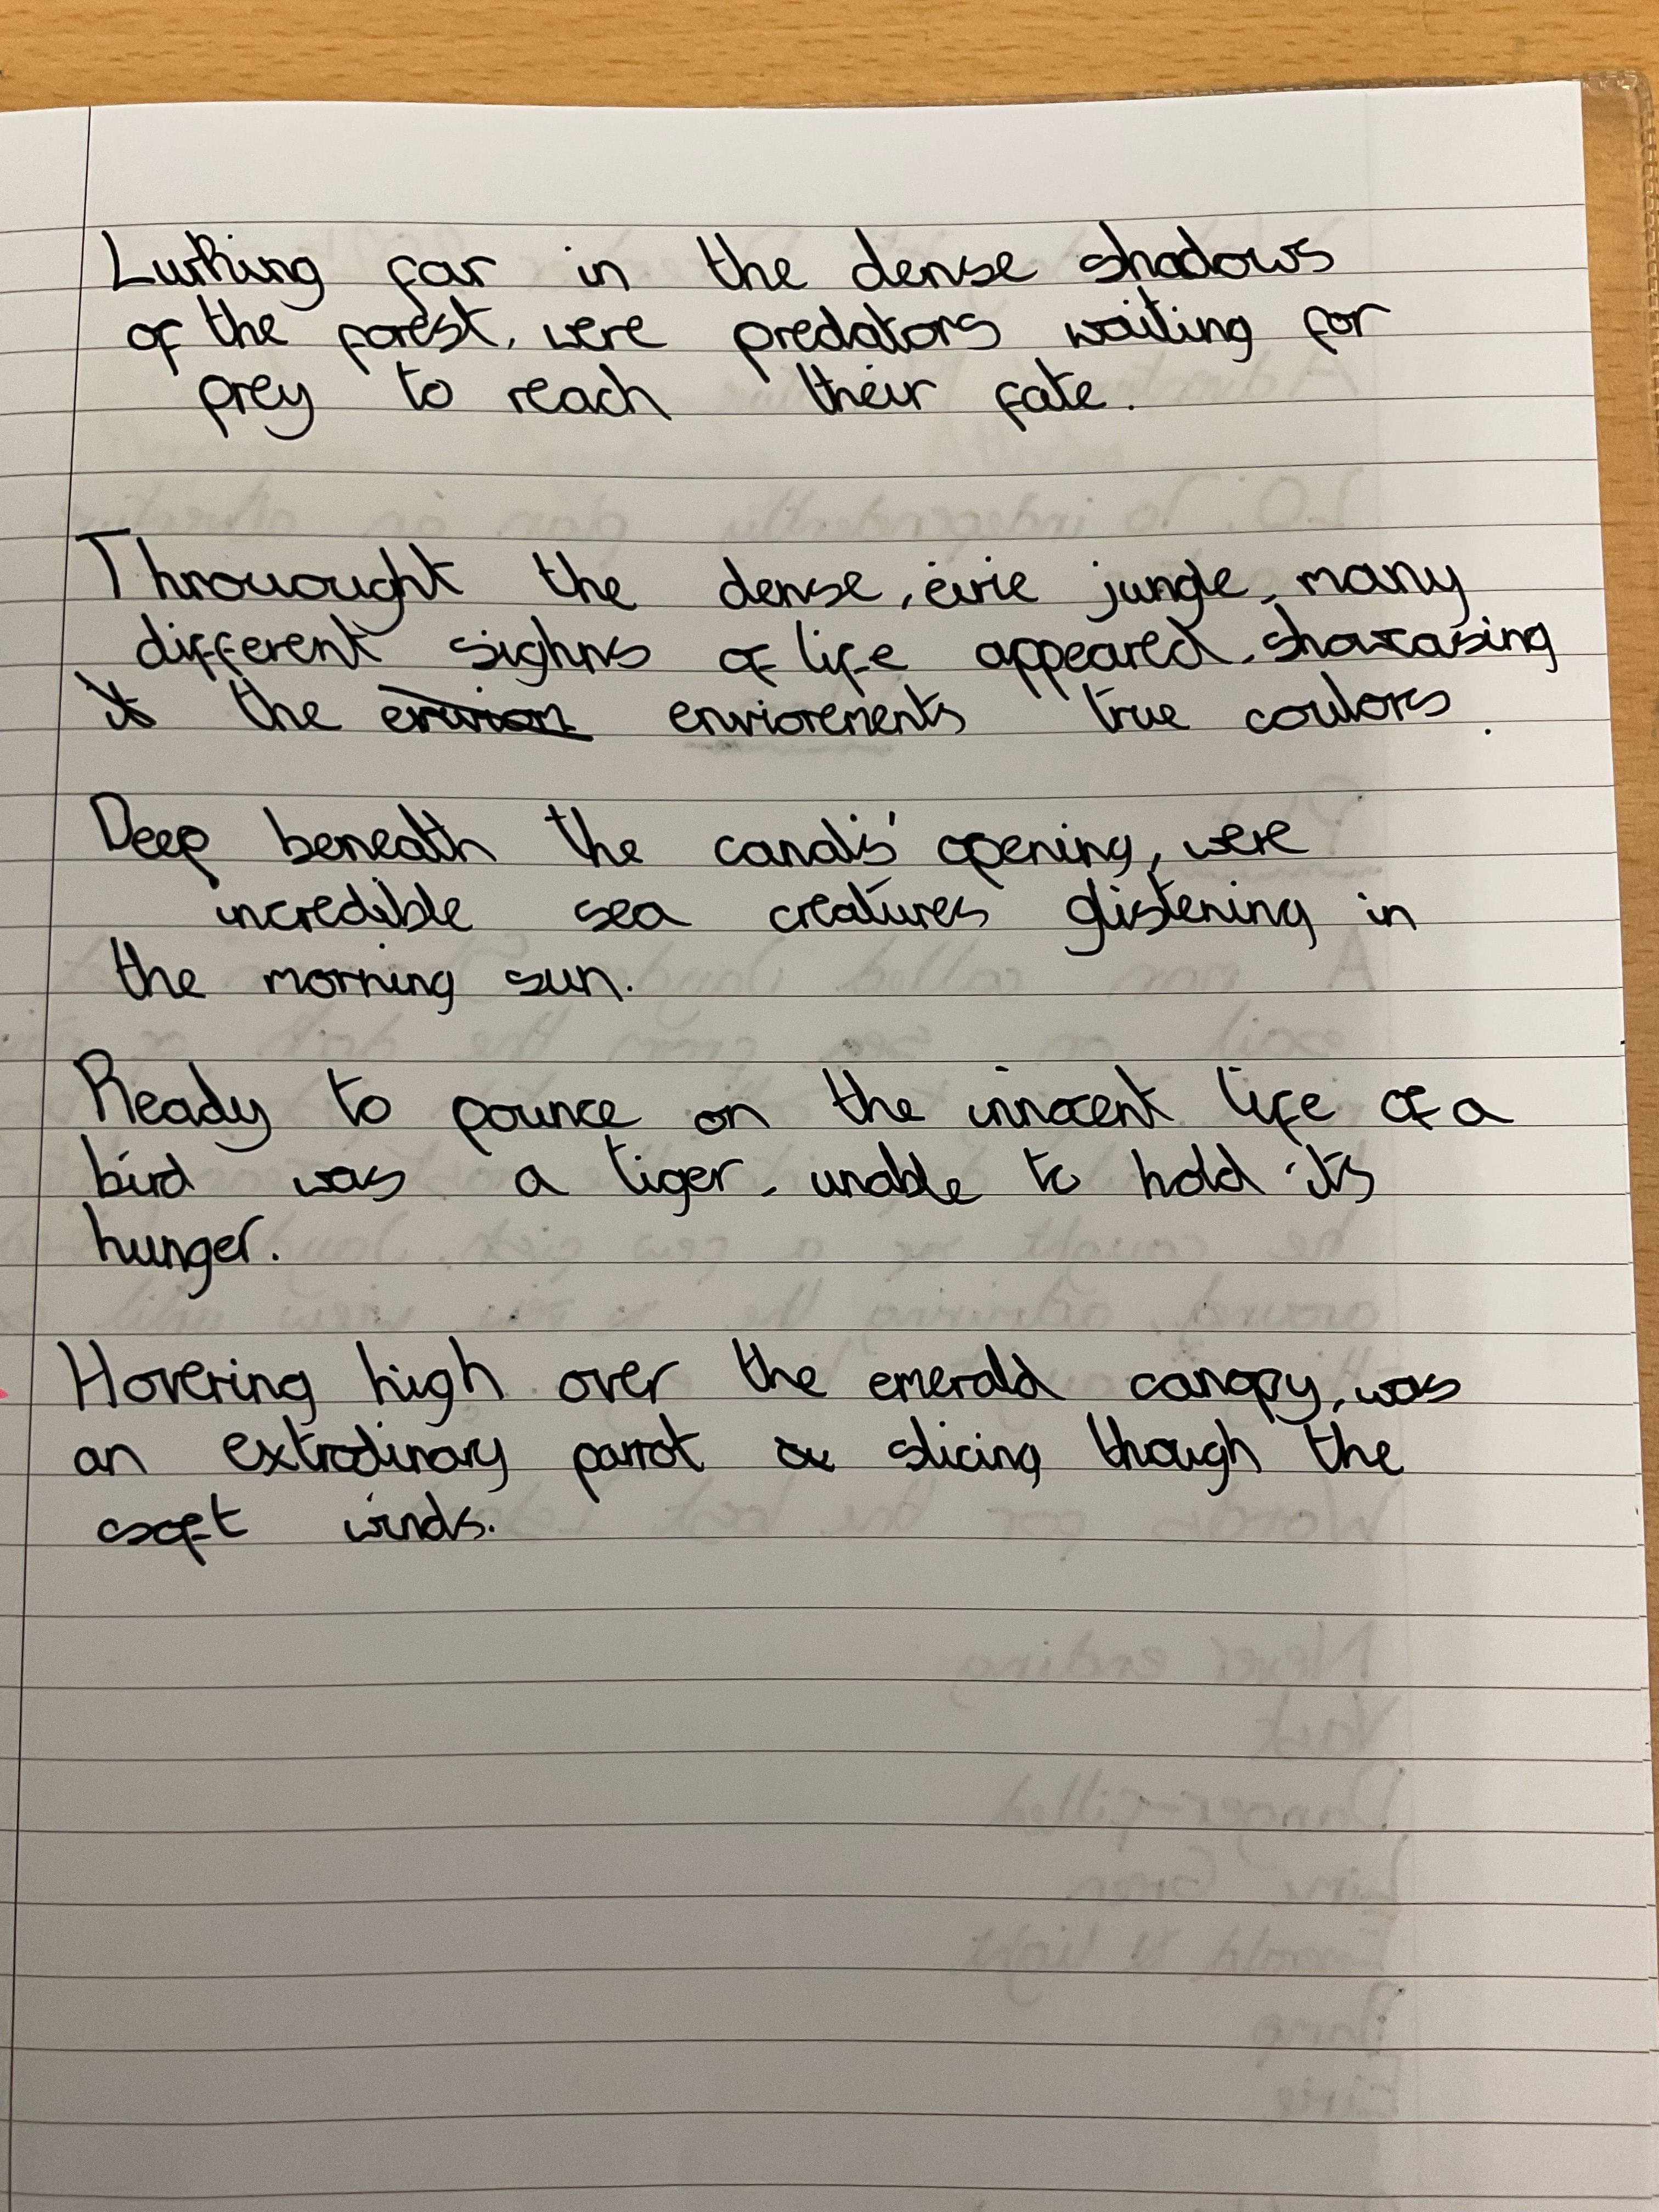 Lurking far in the dense shadows
of the forest, were predators waiting for
prey to reach their fate.
Throuought the dense, eirie jungle, many
different sighns of life appeared, showcasing
the enviorements true coulors.
Deep beneath the canals' opening, were
incredible sea creatures glistening in
the morning sun.
Ready to pounce on the innocent life of a
bird was a tiger, unable to hold its
hunger.
Hovering high over the emerald canopy, was
an extrodinary parrot slicing though the
soft winds.